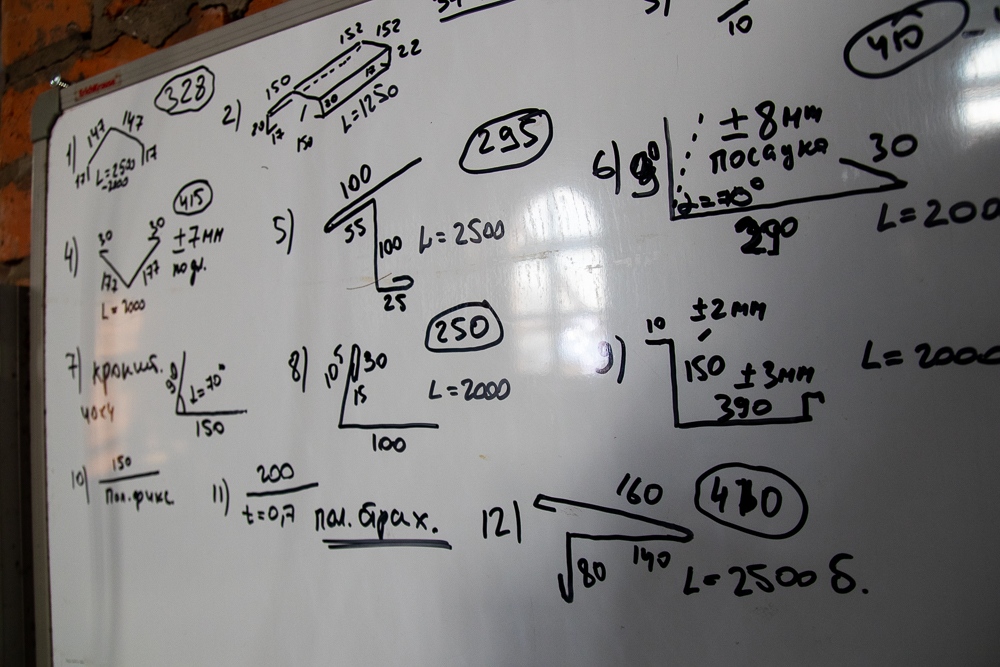 328
1) 147 147
17 17
L=2500
-2000
2) 150 152 152
22
17
20 17 150 20
L=1250
10
410
415
4) 30 30 ±7мм
177 177
L=2000
295
5) 100
55 100 L=2500
25
6) 90 ±8мм
посадка 30
α=70°
290 L=200
7) крепит. 90 L=70°
40x4
150
250
8) 105 30
15 L=2000
100
9) 10 ±2мм
150 ±3мм
390 L=2000
10) 150
11) 200
t=0,7 пол. брак.
12) 160 410
80 140 L=2500 б.